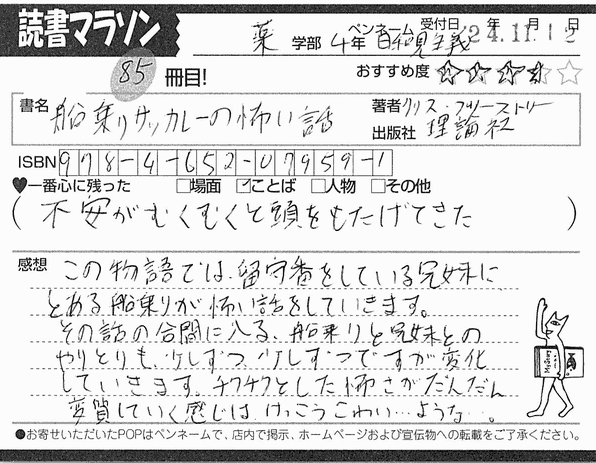 読書マラソン
薬 学部 4年 ペンネーム 日和見主義 受付日 24年11月12日
85 冊目!
おすすめ度 ★★★★☆
書名 船乗りサッカレーの怖い話
著者 クリス・プリーストリー
出版社 理論社
ISBN 978-4-652-07959-1
♥一番心に残った □場面 ☑ことば □人物 □その他
(不安がむくむくと頭をもたげてきた)
感想 この物語では、留守番をしている兄妹に
とある船乗りが怖い話をしていきます。
その話の合間に入る、船乗りと兄妹との
やりとりも、少しずつ、少しずつですが変化
していきます。チクチクとした怖さがだんだん
変質していく感じは、けっこうこわい…ような…。
●お寄せいただいたPOPはペンネームで、店内で掲示、ホームページおよび宣伝物への転載をご了承ください。